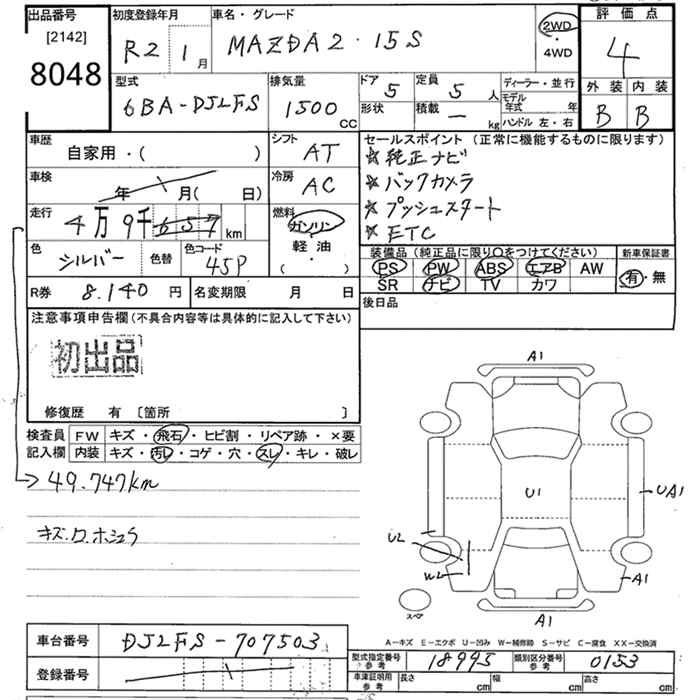 出品番号
[2142]
8048
初度登録年月
R2 1月
車名・グレード
MAZDA2・15S
2WD
・
4WD
評価点
4
外装 内装
B B
型式
6BA-DJLFS
排気量
1500
CC
ドア 5
形状
定員 5 人
積載 ー kg
ディーラー・並行
モデル年式 年
ハンドル 左・右
車歴
自家用・( )
シフト
AT
車検
年 月( 日)
冷房
AC
走行
4万9千657 km
燃料
ガソリン
軽油・
( ・ )
色
シルバー
色替
色コード
45P
R券 8.140 円
名変期限 月 日
セールスポイント (正常に機能するものに限ります)
☆純正ナビ
☆バックカメラ
☆プッシュスタート
☆ETC
装備品(純正品に限り○をつけてください)
PS PW ABS エアB AW
SR ナビ TV カワ
新車保証書
有・無
後日品
注意事項申告欄(不具合内容等は具体的に記入して下さい)
初出品
修復歴 有 [箇所 ]
検査員記入欄
FW キズ・飛石・ヒビ割・リペア跡・×要
内装 キズ・汚レ・コゲ・穴・スレ・キレ・破レ
49.747km
キズ.ワ.ホシュウ
A1
U1
UA1
UL
WL
A1
A1
スペア
A-キズ E-エクボ U-凹み W-補修跡 S-サビ C-腐食 XX-交換済
車台番号 DJLFS-707503
登録番号
型式指定番号 参考 18995
類別区分番号 参考 0153
車庫証明用 参考 長さ cm 幅 cm 高さ cm